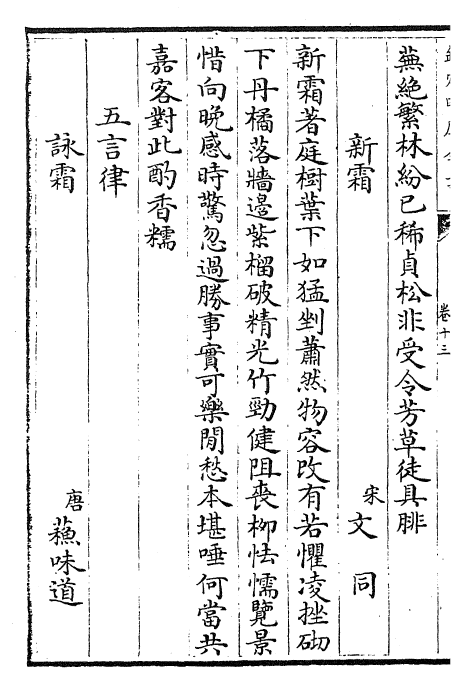 卷十三
蕪絶繁林紛已稀貞松非受令芳草徒具腓
新霜
宋 文同
新霜著庭樹葉下如猛剉蕭然物容改有若懼凌挫砌
下丹橘落牆邉紫榴破精光竹勁健阻喪柳怯懦覽景
惜向晚感時驚忽過勝事實可樂閒愁本堪唾何當共
嘉客對此酌香糯
五言律
詠霜
唐 蘓味道